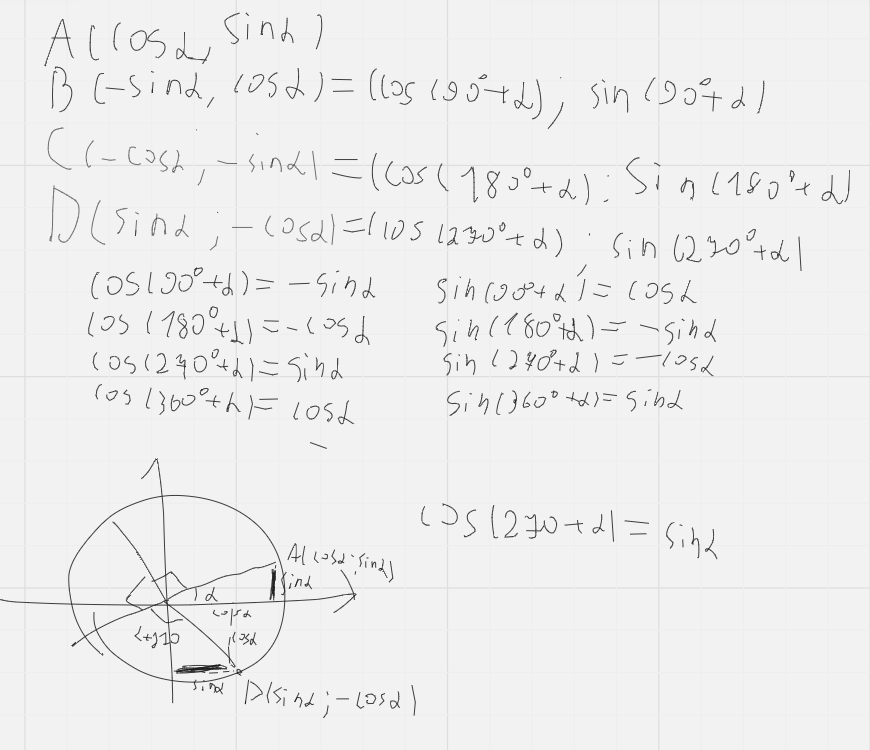 A(cosα, sinα)
B(-sinα, cosα)=(cos(90°+α); sin(90°+α)
C(-cosα; -sinα)=(cos(180°+α); sin(180°+α)
D(sinα; -cosα)=(cos(270°+α); sin(270°+α)
cos(90°+α)= -sinα sin(90°+α)= cosα
cos(180°+α)=-cosα sin(180°+α)= -sinα
cos(270°+α)=sinα sin(270°+α)=-cosα
cos(360°+α)= cosα sin(360°+α)=sinα
cos(270+α)= sinα
A(cosα; sinα)
sinα
α
cosα
cosα
sinα
D(sinα; -cosα)